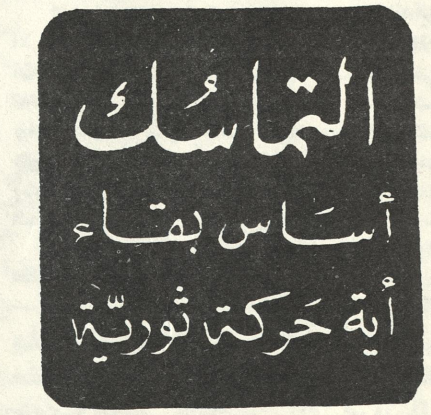 التماسُك
أسَاس بقاء
أية حَركة ثوريّة